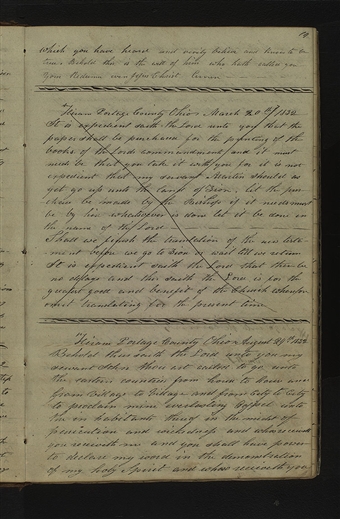 which you have heard and verily believe and know to be
true Behold this is the will of him who hath called you
your Redeemer even Jesus Christ Amen
Hiram Portage County Ohio March 20th 1832
It is expedient saith the Lord unto you that the
paper shall be purchased for the printing of the
books of the Lords commandments and it must
needs be that you take it with you for it is not
expedient that my servant Martin should as
yet go up unto the land of Zion. let the pur
chase be made by the Bishop if it must needs
be by him whatsoever is done let it be done in
the name of the Lord
Shall we finish the translation of the new testa
ment before we go to Zion or wait till we return
It is expedient saith the Lord that there be
no delays and this saith the Lord is for the
greatest good and benefit of the Church wherefore
omit translating for the present time
Hiram Portage County Ohio August 29th 1832
Behold thus saith the Lord unto you my
servant John thou art called to go unto
the eastern countries from house to house and
from village to village and from City to City
to proclaim mine everlasting Gospel unto
the inhabitants thereof in the midst of
persecution and wickedness and whoso receiveth
you receiveth me and you shall have power
to declare my word in the demonstration
of my holy Spirit and whoso receiveth you